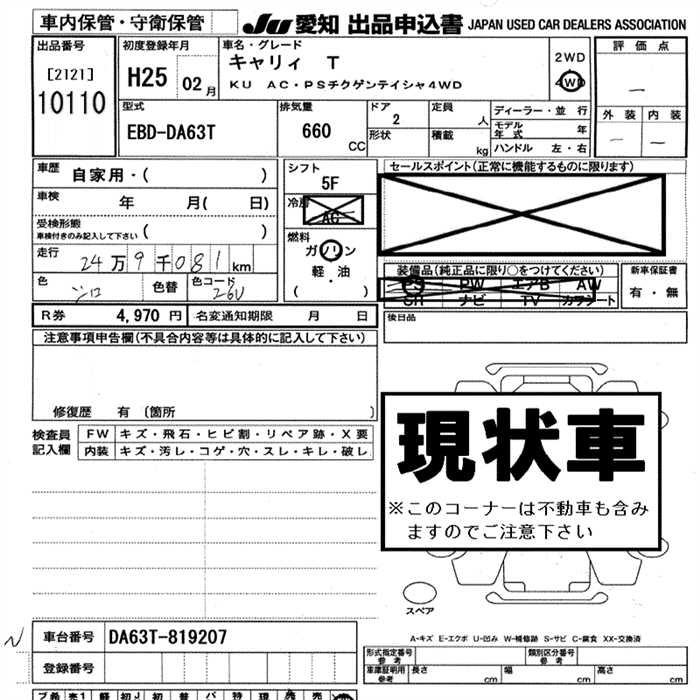 車内保管・守衛保管 JU 愛知 出品申込書 JAPAN USED CAR DEALERS ASSOCIATION
出品番号
[2121]
10110
初度登録年月
H25 02月
車名・グレード
キャリィ T
KU AC・PSチクゲンテイシャ4WD
2WD
4WD
評価点
—
外装 内装
— —
型式
EBD-DA63T
排気量
660 CC
ドア
2
形状
定員
人
積載
kg
ディーラー・並行
モデル年式 年
ハンドル 左・右
車歴 自家用・( )
車検 年 月( 日)
受検形態
車検付きのみ記入して下さい ( )
走行
24万9千081km
色 シロ 色替 色コード 26U
シフト
5F
冷房
AC
燃料
ガソリン
軽・油
( )
セールスポイント(正常に機能するものに限ります)
装備品(純正品に限り○をつけてください)
PS PW エアB AW
SR ナビ TV カワシート
新車保証書
有・無
R券 4,970円 名変通知期限 月 日
後日品
注意事項申告欄(不具合内容等は具体的に記入して下さい)
修復歴 有 〔箇所 〕
検査員記入欄
FW キズ・飛石・ヒビ割・リペア跡・X要
内装 キズ・汚レ・コゲ・穴・スレ・キレ・破レ
現状車
※このコーナーは不動車も含み
ますのでご注意下さい
スペア
A-キズ E-エクボ U-凹み W-補修跡 S-サビ C-腐食 XX-交換済
車台番号 DA63T-819207
登録番号
形式指定番号 参考
類別区分番号 参考
車庫証明用 参考 長さ cm 幅 cm 高さ cm